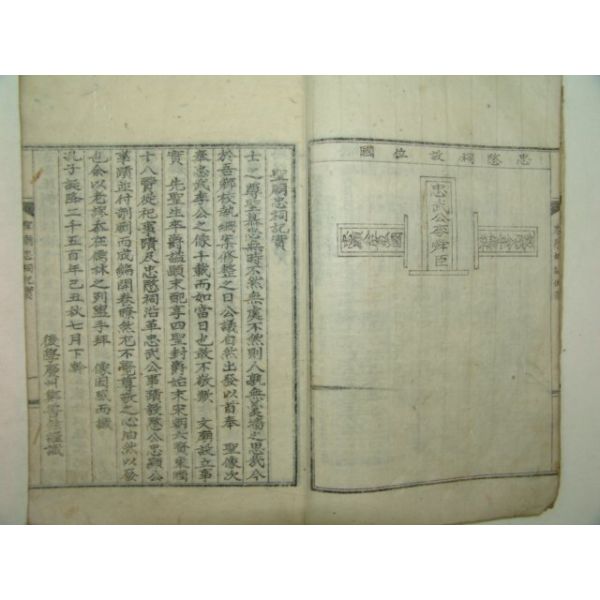 忠愍祠設位圖
忠武公李舜臣
聖廟忠祠記實
士之尊聖慕忠無時不然無處不然則人孰無羹墻之思哉今
於吾鄉校執綱齊修整之日公議自然出發以首奉 聖像次
奉忠武李公之像千載而如當日也敢不敬歟 文廟設立事
實 先聖生卒爵謚顯末配享四聖封爵始末宋朝六賢東國
十八賢從祀事蹟及忠愍祠沿革忠武公事蹟毅愍公忠顯公
事蹟並付剞劂而成編開卷瞭然尤不勝尊敬之心油然以發
也余以老採忝在儒林之列盥手拜 像因感而識
孔子誕降二千五百年己丑秋七月下澣
後學 謹識